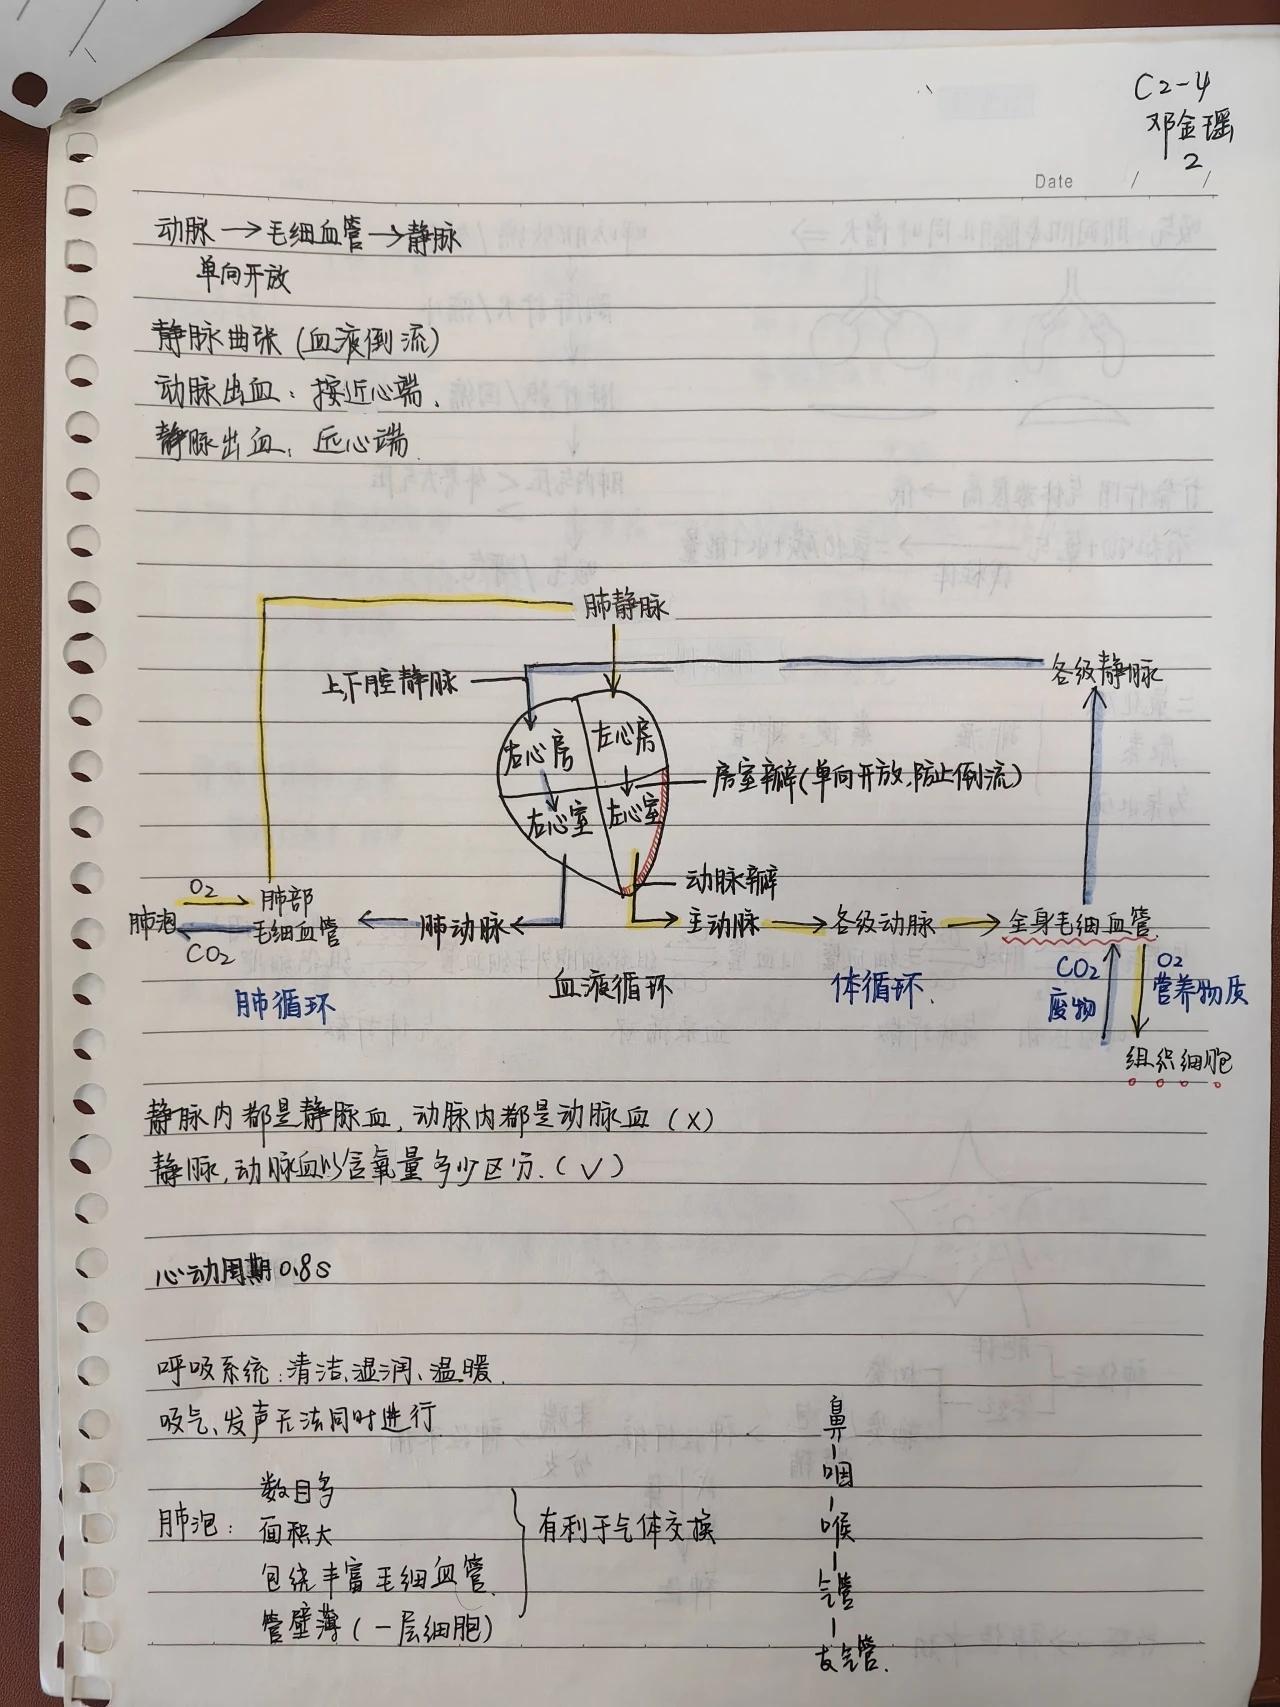 C2-4
邓金瑶
2
Date / /
动脉→毛细血管→静脉
单向开放
静脉曲张(血液倒流)
动脉出血:按近心端.
静脉出血:远心端.
肺静脉
上,下腔静脉
各级静脉
右心房
左心房
房室瓣(单向开放,防止倒流)
右心室
左心室
动脉瓣
O2
肺部
肺泡
毛细血管
CO2
肺动脉
主动脉→各级动脉→全身毛细血管.
肺循环
血液循环
体循环.
CO2
废物
O2
营养物质
组织细胞
静脉内都是静脉血,动脉内都是动脉血(×)
静脉,动脉血以含氧量多少区分.(√)
心动周期0.8s
呼吸系统:清洁、湿润、温暖.
吸气、发声无法同时进行
肺泡:
数目多
面积大
包绕丰富毛细血管.
管壁薄(一层细胞)
有利于气体交换
鼻
咽
喉
气管
支气管.